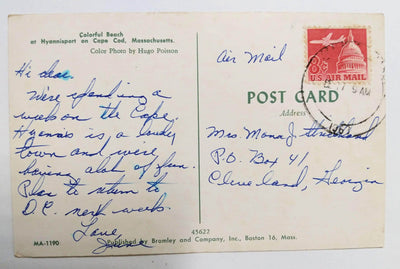 Colorful Beach
at Hyannisport on Cape Cod, Massachusetts.
Color Photo by Hugo Poisson
Hi dear,
We're spending a
week on the Cape.
Hyannis is a lovely
town and we're
having alot of fun.
Plan to return to
D.C. next week.
Love,
MA-1190
Published by Bramley and Company, Inc., Boston 16, Mass.
45622
Air Mail
8¢
U.S. AIR MAIL
AM
POST CARD
Address
Mrs Mona J.
P.O. Box 41
Cleveland, Georgia